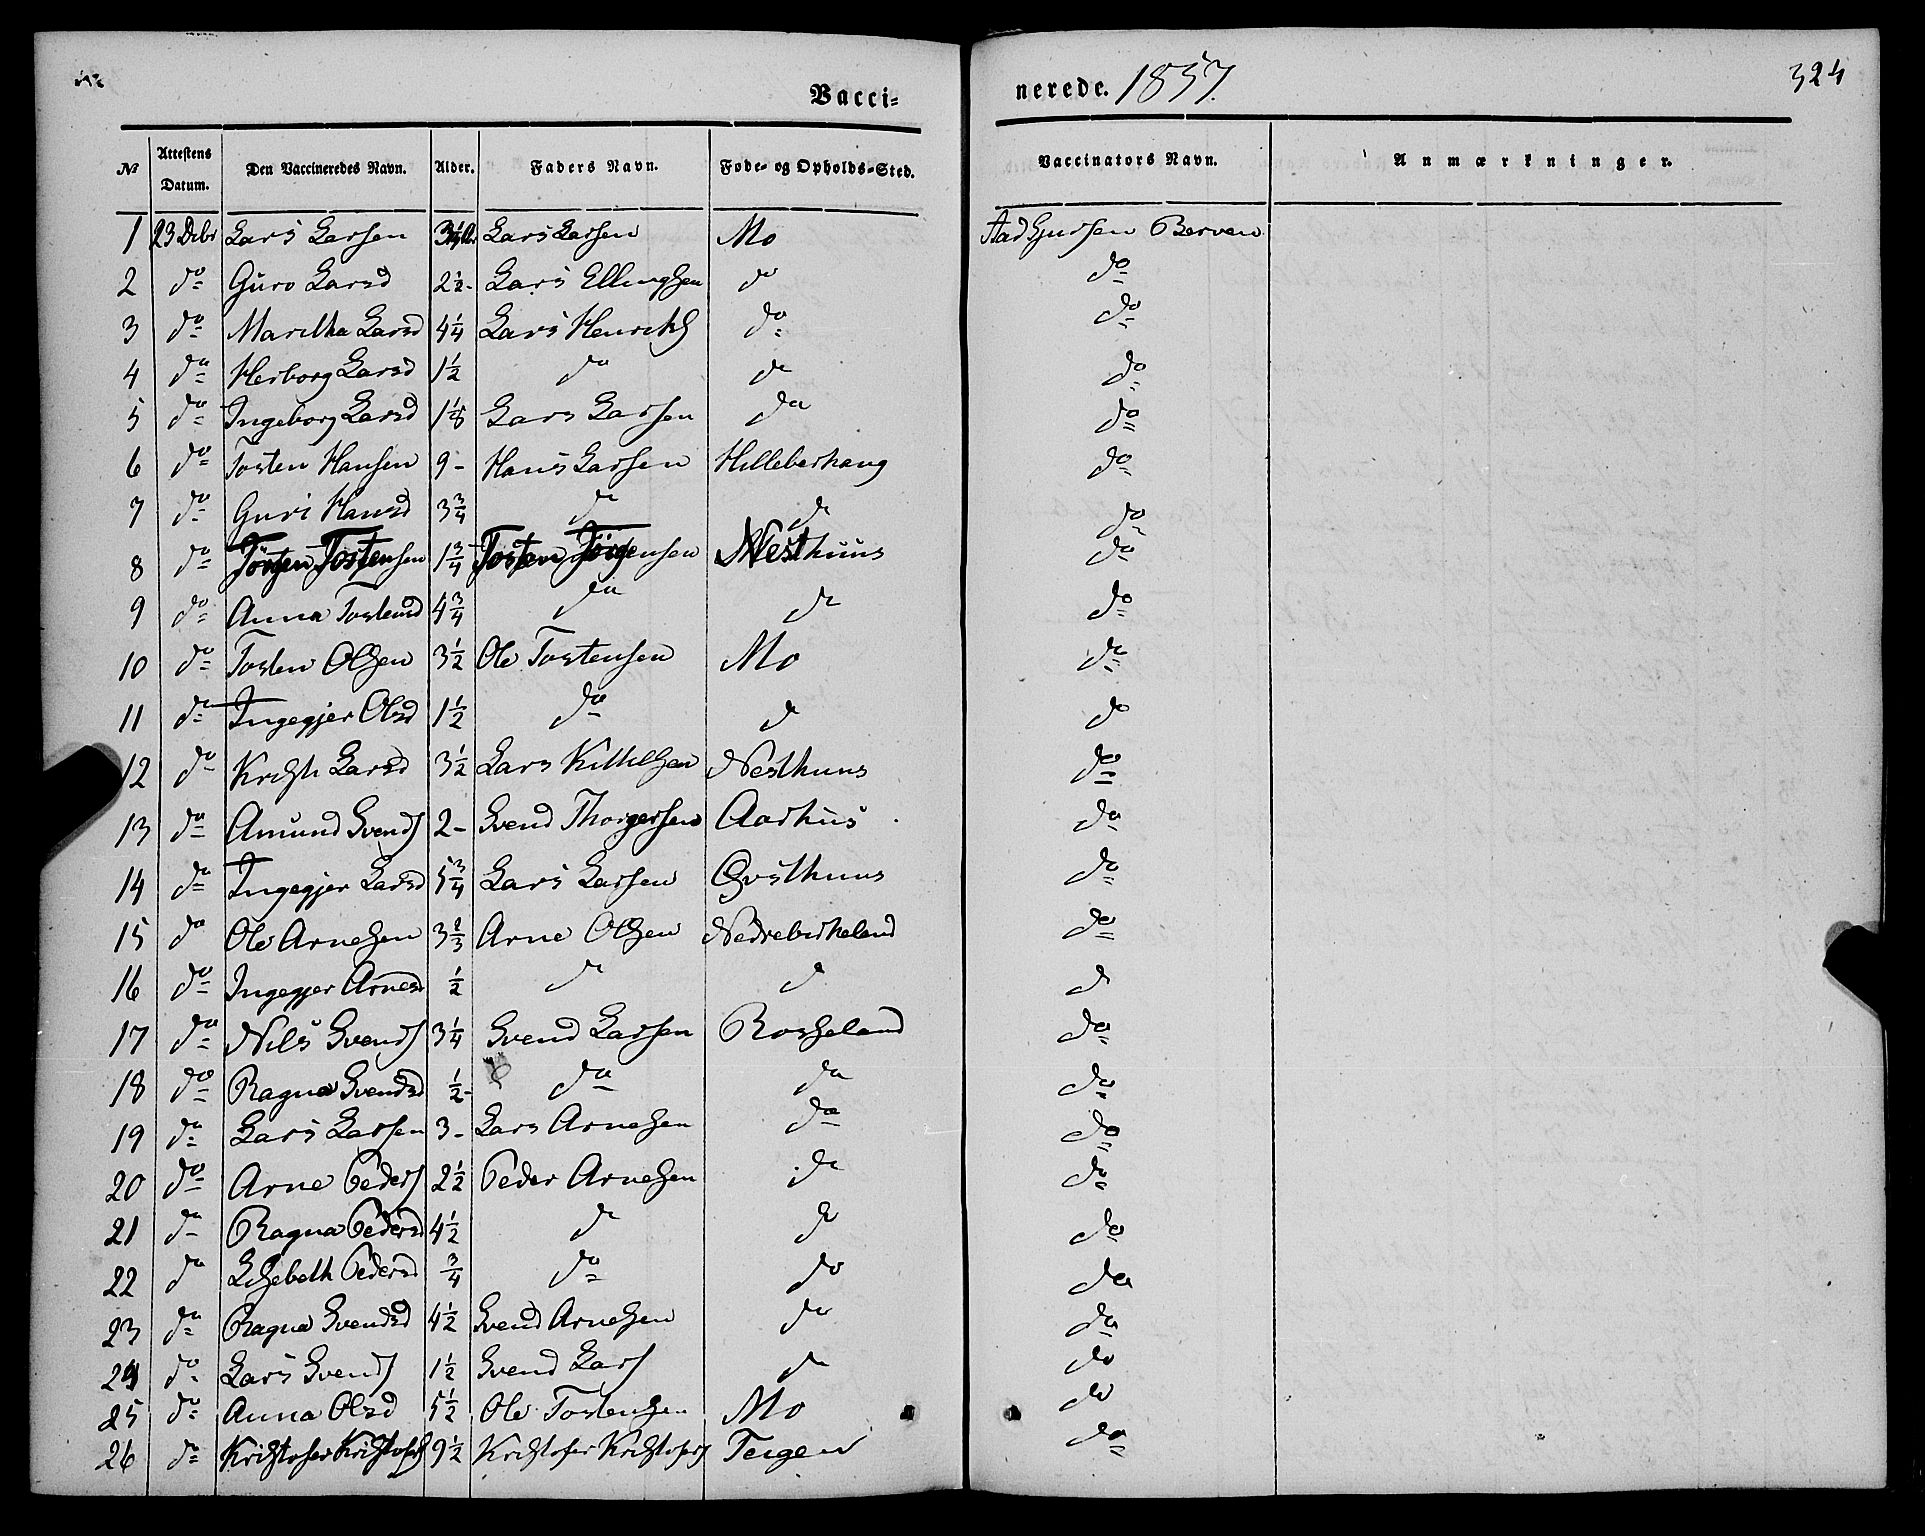 Vacci-
nerede. 1857.
324
№ Attestens Datum. Den Vaccineredes Navn. Alder. Faders Navn. Føde- og Opholds-Sted. Vaccinators Navn. Anmærkninger.
1 23 Debr Lars Larsen Lars Larsen Mo Aad Gjursen Berven
2 do Guro Larsd 2½ - Lars Ellingsen do do
3 do Maritha Larsd 4¼ Lars Henriks do do
4 do Herborg Larsd 1½ do do do
5 do Ingeborg Larsd 1⅛ Lars Larsen do do
6 do Tosten Hansen 9 - Hans Larsen Hilleberhaug do
7 do Guri Hansd 3¾ do do do
8 do Törgen Tostensen 1¾ Tosten Törgensen Nesthuus do
9 do Anna Tostensd 4¾ do do do
10 do Tosten Olsen 3½ Ole Tostensen Mo do
11 do Ingegjer Olsd 1½ do do do
12 do Kristi Larsd 3½ Lars Kittilsen Nesthuus do
13 do Amund Svends 2 - Svend Thorgersen Aarhuus do
14 do Ingegjer Larsd 5¾ Lars Larsen Qvsthuus do
15 do Ole Arnesen 3⅔ Arne Olsen Nedrebirkeland do
16 do Ingegjer Arnesd ½ do do do
17 do Nils Svends 3¼ Svend Larsen Rosseland do
18 do Ragna Svendsd ½ - do do do
19 do Lars Larsen 3 - Lars Arnesen do do
20 do Arne Peders 2½ Peder Arnesen do do
21 do Ragna Pedersd 4½ do do do
22 do Lisebeth Pedersd ¾ do do do
23 do Ragna Svendsd 4½ Svend Arnesen do do
24 do Lars Svends 1½ Svend Lars do do
25 do Anna Olsd 5½ Ole Tostensen Mo do
26 do Kristofer Kristofers 9½ Kristofer Kristofers Teigen do